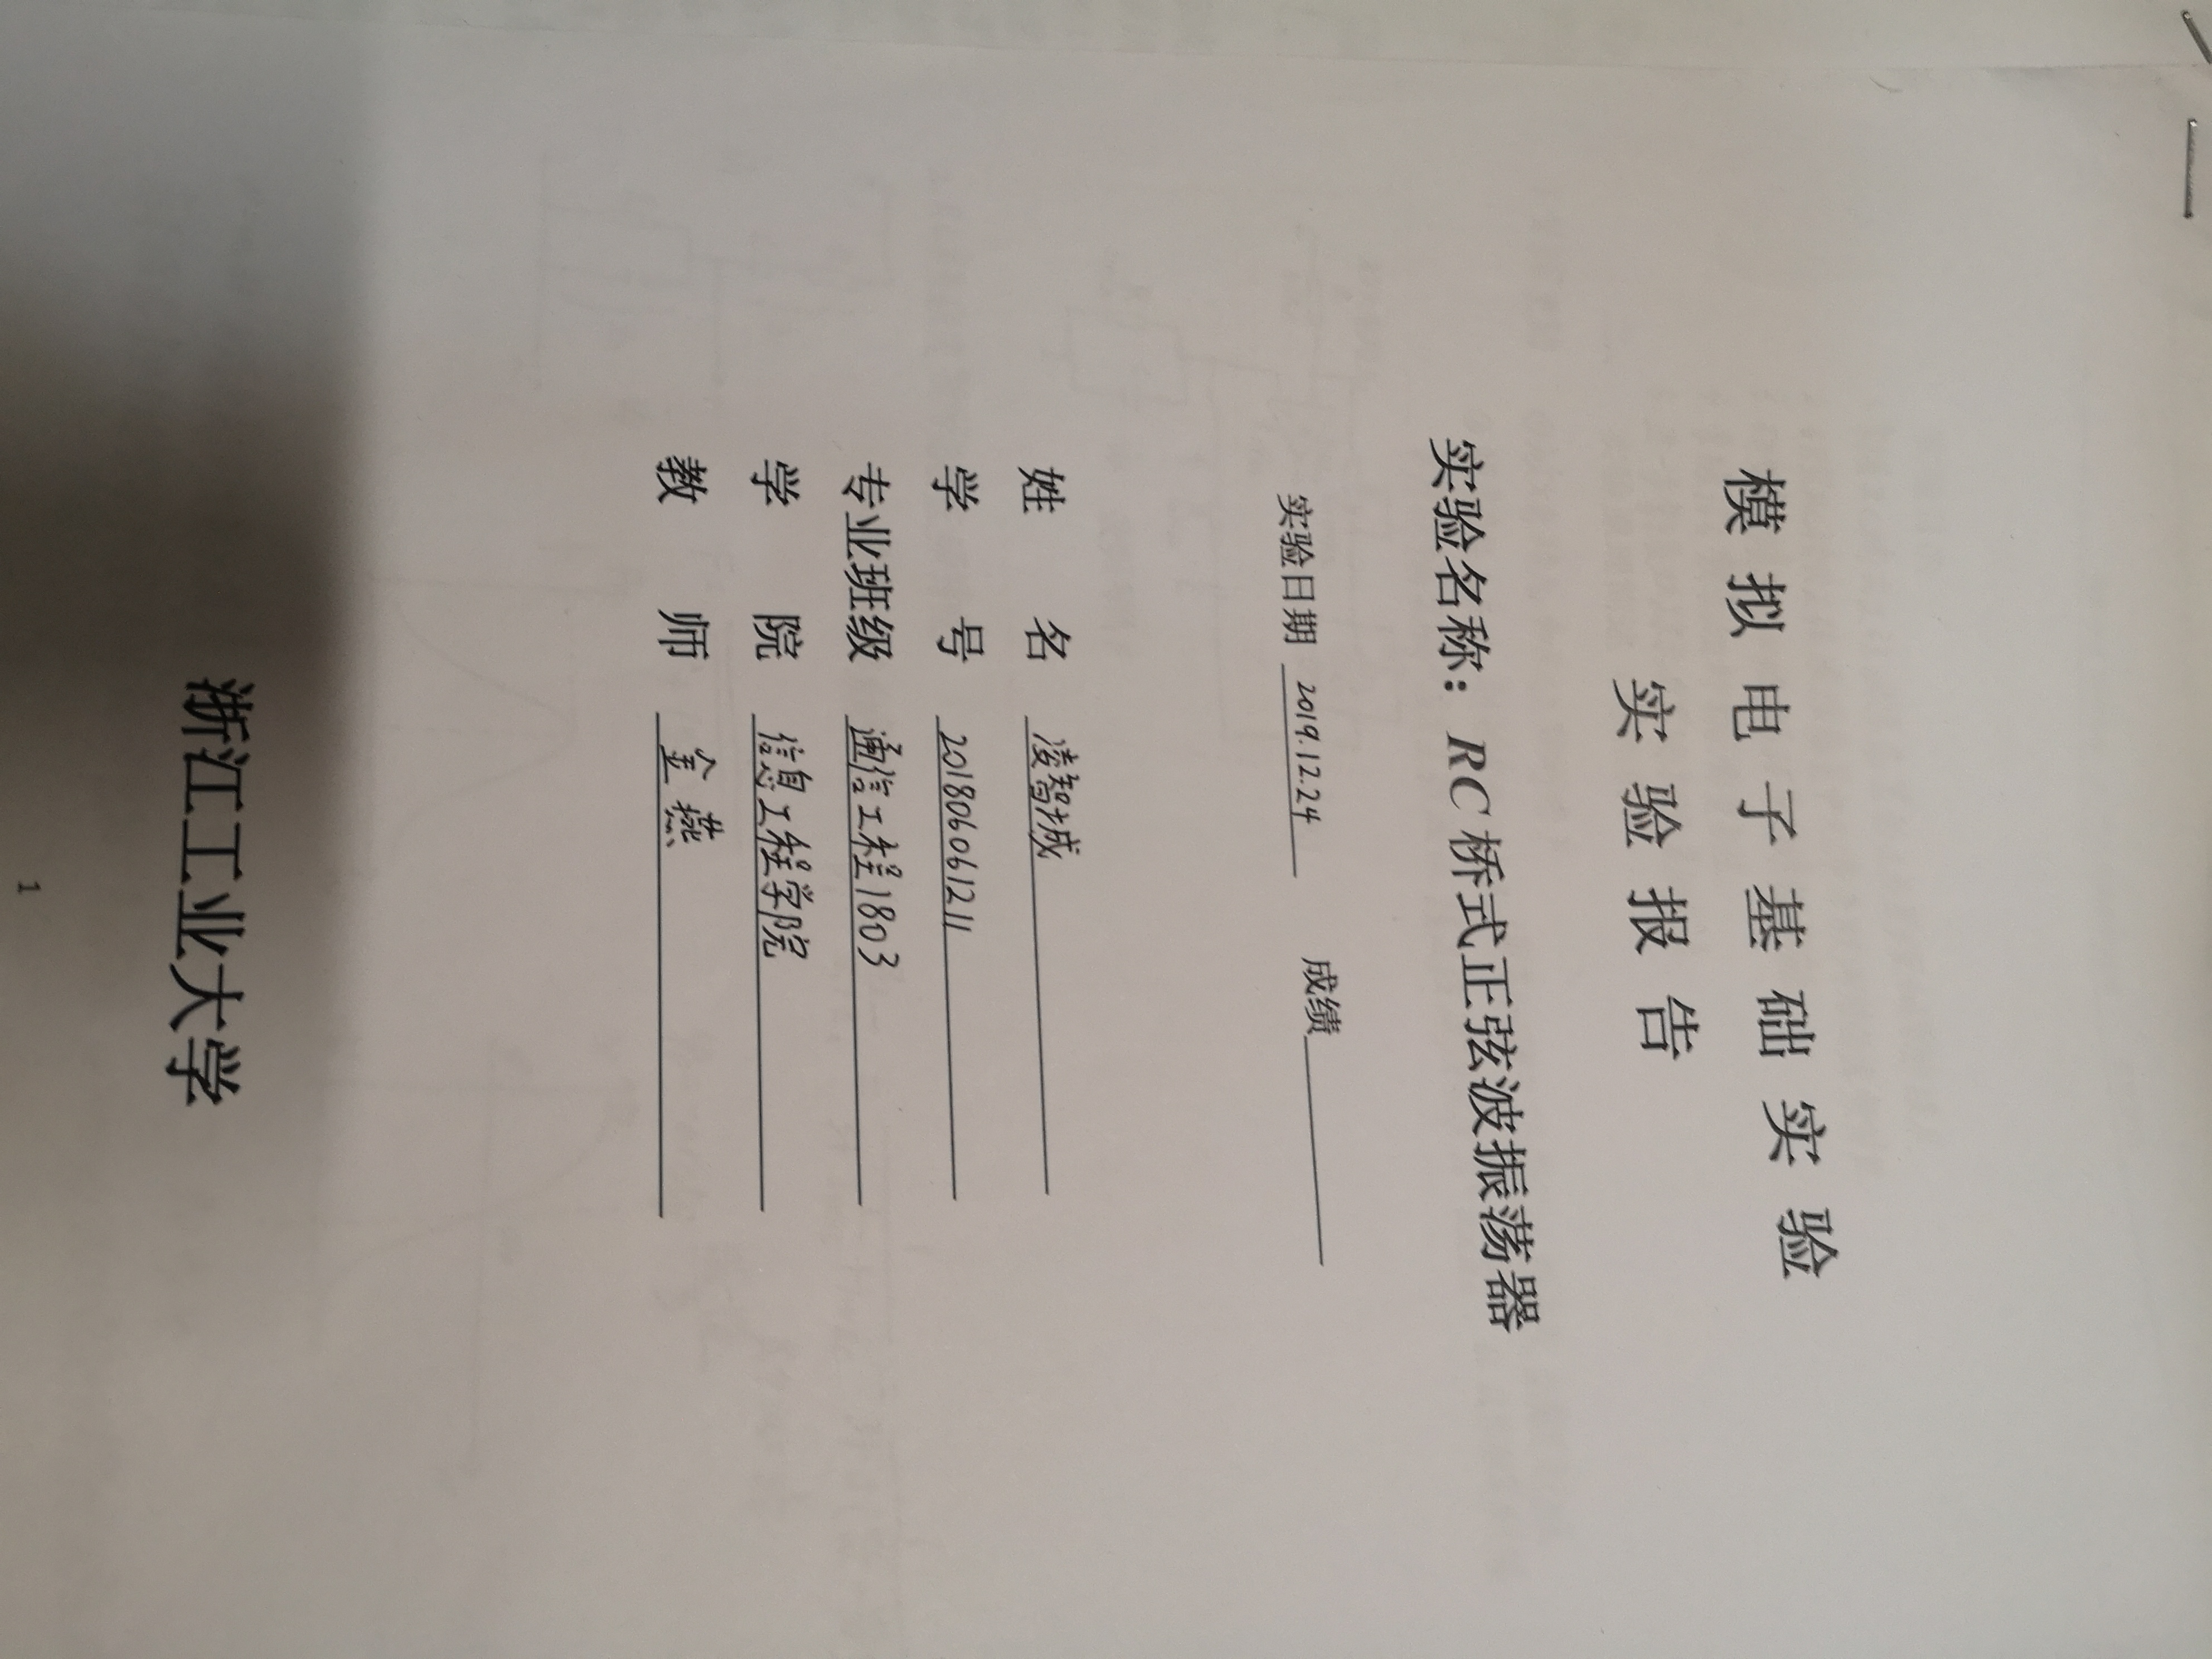 模拟电子基础实验
实验报告
实验名称：RC桥式正弦波振荡器
实验日期 2019.12.24 成绩
姓名 凌智城
学号 201806061211
专业班级 通信工程1803
学院 信息工程学院
教师 金燕
浙江工业大学
1